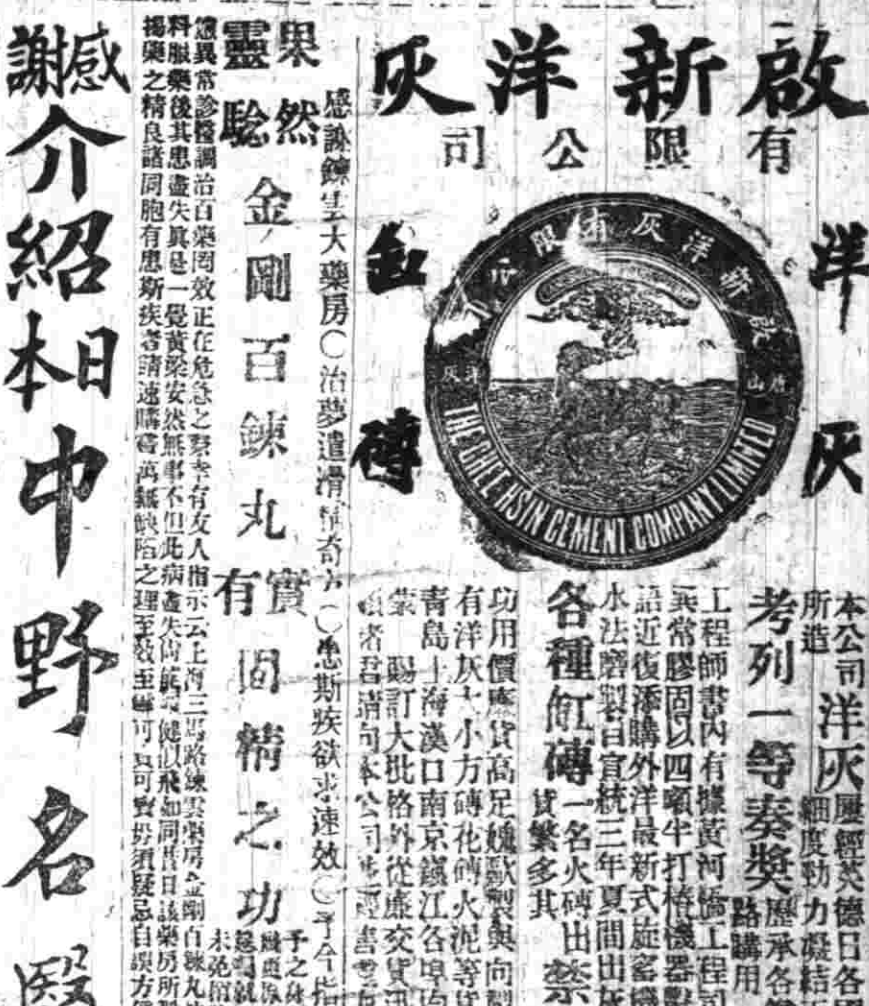 啟新洋灰
有限公司
洋灰
缸磚
啟新洋灰有限公司
唐山
洋灰
THE CHEE HSIN CEMENT COMPANY LIMITED
本公司
所造
洋灰
歷經英德日各
細度勁力凝結
考列一等奏獎
歷承各
路購用
工程師書內有據黃河橋工程
異常膠固以四噸半打樁機器
語近復添購外洋最新式旋窰機
水法磨製自宣統三年夏間出灰
各種缸磚
一名火磚出
貨繁多其
禁
功用價廉貨高足媲歐製與向
有洋灰大小方磚花磚火泥等貨
青島上海漢口南京鎮江各埠均
蒙 賜訂大批格外從廉交貨迅
者君請向本公司
感謝鍊雲大藥房〇治夢遺滑精奇方〇患斯疾欲求速效〇予今指
果然
靈驗
金剛百鍊丸
實有
固精之功
異常診醫調治百藥罔效正在危急之際幸有友人指示云上海三馬路鍊雲藥房金剛百鍊丸
料服藥後其患盡失真是一覺黃粱安然無事不但此病盡失
揚藥之精良諸同胞有患斯疾者請速購嘗萬無缺陷之理至效至
感謝
介紹日本中野名醫